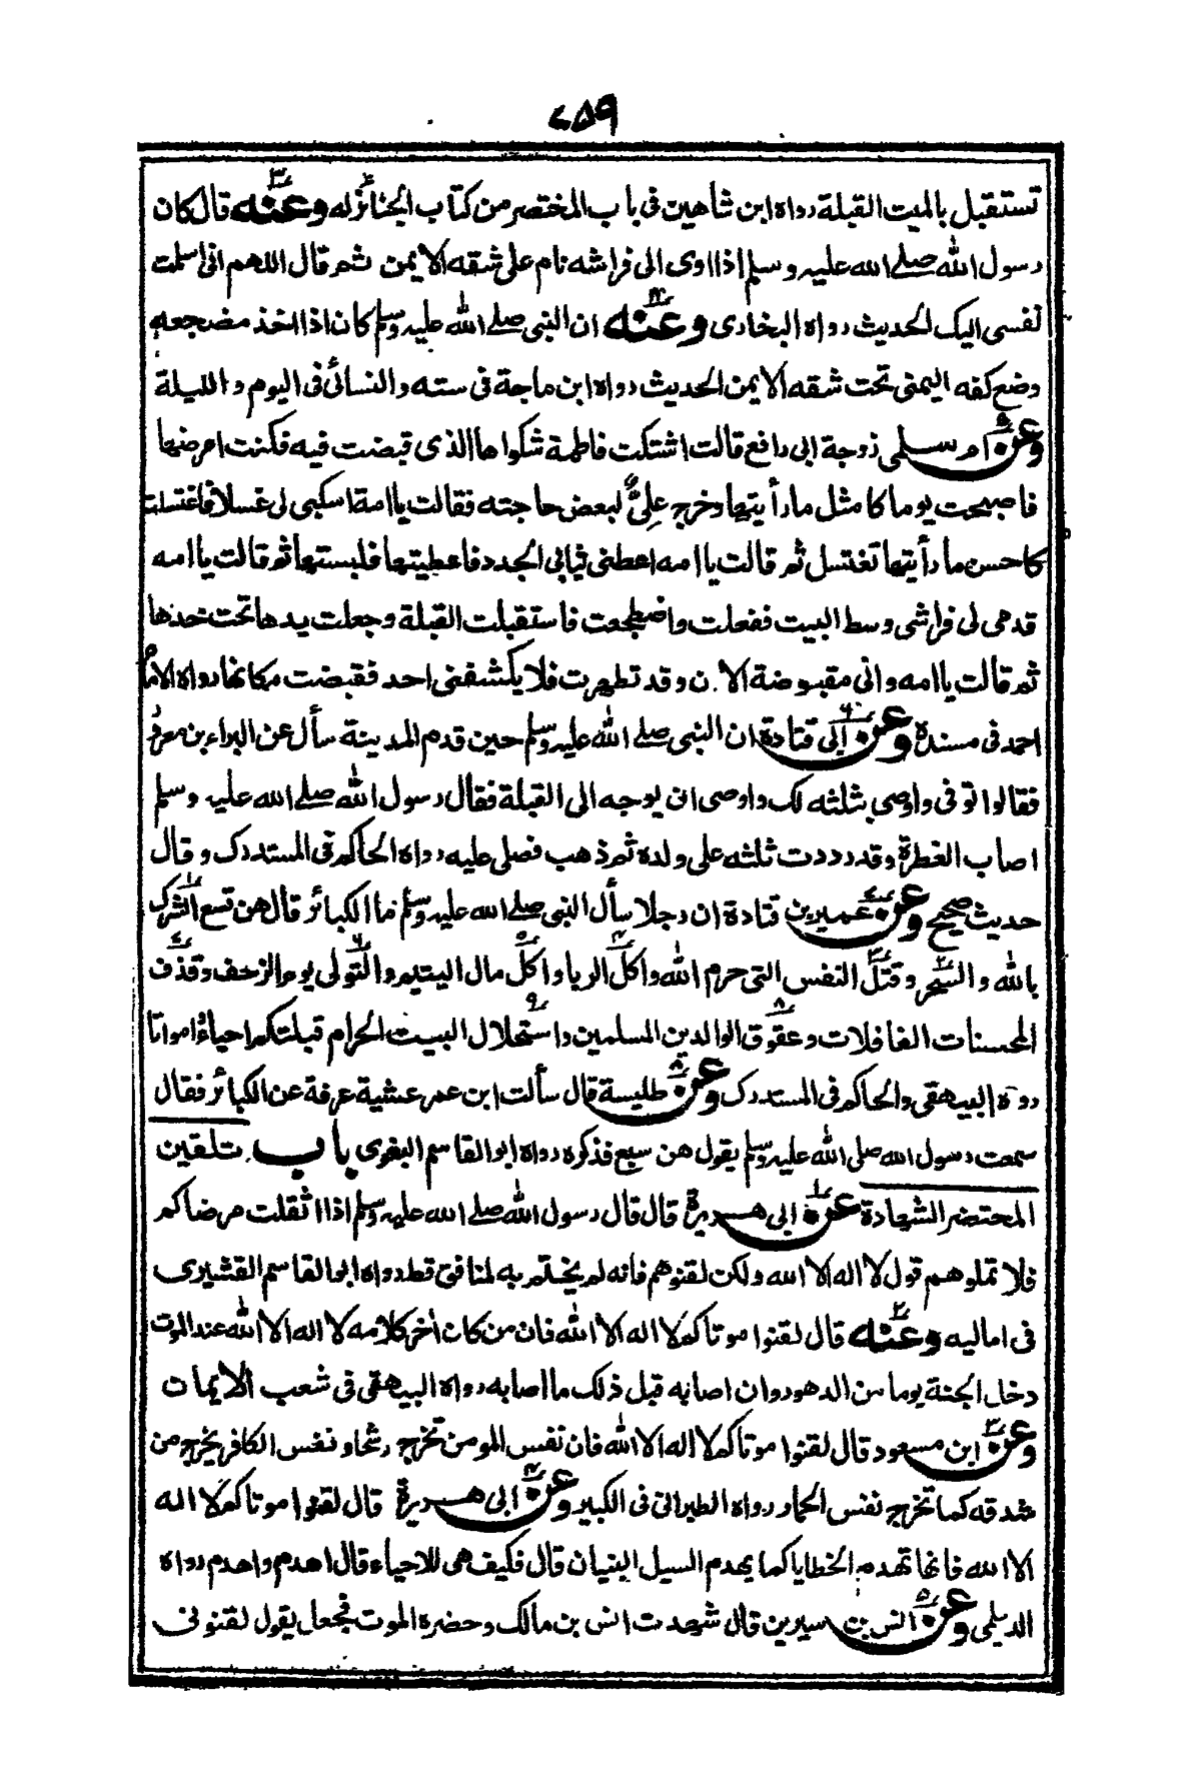 ۷۵۹
تستقبل بالميت القبلة رواه ابن شاهين فى باب المختصر من كتاب الجنائز له وعنه قال كان
رسول الله صلے الله عليه وسلم اذا اوى الى فراشه نام على شقه الايمن ثم قال اللهم انى اسلمت
نفسى اليك الحديث رواه البخارى وعنه ان النبى صلے الله عليه وسلم كان اذا اخذ مضجعه
وضع كفه اليمنى تحت شقه الايمن الحديث رواه ابن ماجة فى سننه والنسائى فى اليوم والليلة
وعن ام سلمى زوجة ابى رافع قالت اشتكت فاطمة شكواها الذى قبضت فيه فكنت امرضها
فاصبحت يوما كا مثل ما رأيتها وخرج علىٌّ لبعض حاجته فقالت يا امة اسكبى لى غسلا فاغتسلت
كاحسن ما رأيتها تغتسل ثم قالت يا امه اعطنى ثيابى الجدد فاعطيتها فلبستها ثم قالت يا امه
قدمى لى فراشى وسط البيت ففعلت واضطجعت فاستقبلت القبلة وجعلت يدها تحت خدها
ثم قالت يا امه وانى مقبوضة الان وقد تطهرت فلا يكشفنى احد فقبضت مكانها رواه الامام
احمد فى مسنده وعن ابى قتادة ان النبى صلے الله عليه وسلم حين قدم المدينة سأل عن البراء بن معرور
فقالوا توفى واوصى بثلثه لك واوصى ان يوجه الى القبلة فقال رسول الله صلے الله عليه وسلم
اصاب الفطرة وقد رددت ثلثه على ولده ثم ذهب فصلى عليه رواه الحاكم فى المستدرك وقال
حديث صحيح وعن عمير بن قتادة ان رجلا سأل النبى صلے الله عليه وسلم ما الكبائر قال هن تسع الشرك
بالله والسحر وقتل النفس التى حرم الله واكل الربا واكل مال اليتيم والتولى يوم الزحف وقذف
المحسنات الغافلات وعقوق الوالدين المسلمين واستحلال البيت الحرام قبلتكم احياءً امواتا
رواه البيهقى والحاكم فى المستدرك وعن طليسة قال سألت ابن عمر عشية عرفة عن الكبائر فقال
سمعت رسول الله صلى الله عليه وسلم يقول هن سبع فذكره رواه ابو القاسم البغوى باب تلقين
المحتضر الشهادة عن ابى هريرة قال قال رسول الله صلے الله عليه وسلم اذا اثقلت مرضاكم
فلا تملوهم قول لا اله الا الله ولكن لقنوهم فانه لم يختم به لمنافق قط رواه ابو القاسم القشيرى
فى اماليه وعنه قال لقنوا موتاكم لا اله الا الله فان من كان اخر كلامه لا اله الا الله عند الموت
دخل الجنة يوما من الدهور وان اصابه قبل ذلك ما اصابه رواه البيهقى فى شعب الايمان
وعن ابن مسعود قال لقنوا موتاكم لا اله الا الله فان نفس المومن تخرج رشحا ونفس الكافر يخرج من
شدقه كما تخرج نفس الحمار رواه الطبرانى فى الكبير وعن ابى هريرة قال لقنوا موتاكم لا اله
الا الله فانها تهدم الخطايا كما يهدم السيل البنيان قال فكيف هى للاحياء قال اهدم واهدم رواه
الديلمى وعن انس بن سيرين قال شهدت انس بن مالك وحضره الموت فجعل يقول لقنونى